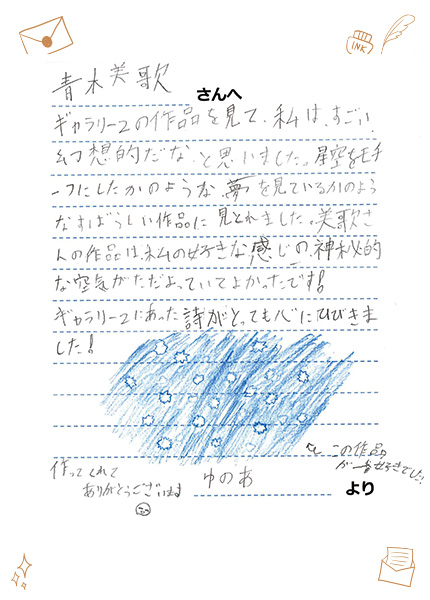 INK
青木美歌 さんへ
ギャラリー2の作品を見て、私は、すごい
幻想的だな、と思いました。星空をモチ
ーフにしたかのような、夢を見ているかのよう
なすばらしい作品に見とれました。美歌さ
んの作品は、私の好きな感じの、神秘的
な空気がただよっていてよかったです!
ギャラリー2にあった詩がとっても心にひびきま
した!
この作品
が一番好きでした!
作ってくれて
ありがとうございます
ゆのあ より